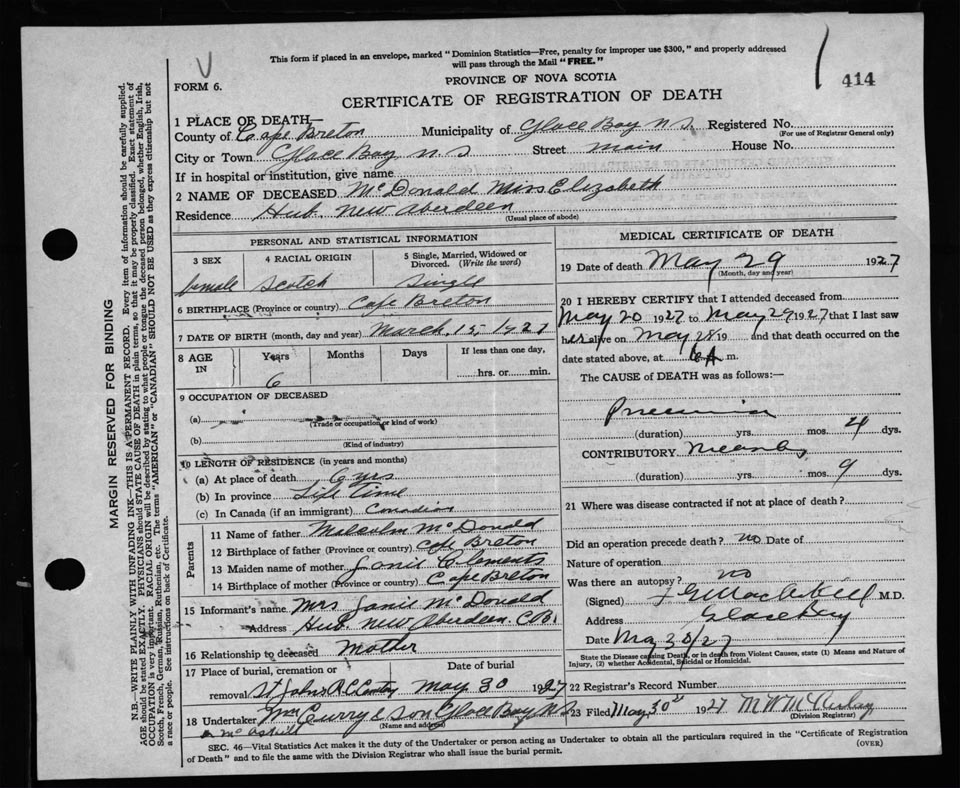 This form if placed in an envelope, marked "Dominion Statistics—Free, penalty for improper use $300," and properly addressed
will pass through the Mail "FREE."
414
FORM 6.
PROVINCE OF NOVA SCOTIA
CERTIFICATE OF REGISTRATION OF DEATH
1 PLACE OF DEATH—
County of Cape Breton Municipality of Glace Bay N S Registered No.
(For use of Registrar General only)
City or Town Glace Bay N S Street Main House No.
If in hospital or institution, give name
2 NAME OF DECEASED McDonald Miss Elizabeth
Residence Hub New Aberdeen
(Usual place of abode)
PERSONAL AND STATISTICAL INFORMATION
3 SEX 4 RACIAL ORIGIN 5 Single, Married, Widowed or
Divorced. (Write the word)
female Scotch Single
6 BIRTHPLACE (Province or country) Cape Breton
7 DATE OF BIRTH (month, day and year) March, 15, 1921
8 AGE IN Years Months Days If less than one day,
6 hrs. or min.
9 OCCUPATION OF DECEASED
(a)
(Trade or occupation or kind of work)
(b)
(Kind of industry)
10 LENGTH OF RESIDENCE (in years and months)
(a) At place of death 6 yrs
(b) In province Life Time
(c) In Canada (if an immigrant) Canadian
Parents
11 Name of father Malcolm McDonald
12 Birthplace of father (Province or country) Cape Breton
13 Maiden name of mother Janie Clements
14 Birthplace of mother (Province or country) Cape Breton
15 Informant's name Mrs Janie McDonald
Address Hub New Aberdeen. C.B.
16 Relationship to deceased Mother
17 Place of burial, cremation or Date of burial
removal St Johns R C May 30 1927
18 Undertaker Wm Curry & Son Glace Bay N S
(Name and address)
MEDICAL CERTIFICATE OF DEATH
19 Date of death May 29 1927
(Month, day and year)
20 I HEREBY CERTIFY that I attended deceased from
May 20 1927 to May 29 1927 that I last saw
her alive on May 28 19 and that death occurred on the
date stated above, at m.
The CAUSE of DEATH was as follows:—
Pneumonia
(duration) yrs. mos. 4 dys.
CONTRIBUTORY Measles
(duration) yrs. mos. 9 dys.
21 Where was disease contracted if not at place of death?
Did an operation precede death? no Date of
Nature of operation
Was there an autopsy? no
(Signed) M.D.
Address Glace Bay
Date May 27
State the Disease causing Death, or in death from Violent Causes, state (1) Means and Nature of
Injury, (2) whether Accidental, Suicidal or Homicidal.
22 Registrar's Record Number
23 Filed May 30th 1927
(Division Registrar)
SEC. 46—Vital Statistics Act makes it the duty of the Undertaker or person acting as Undertaker to obtain all the particulars required in the "Certificate of Registration
of Death" and to file the same with the Division Registrar who shall issue the burial permit. (OVER)
MARGIN RESERVED FOR BINDING
N.B.—WRITE PLAINLY WITH UNFADING INK—THIS IS A PERMANENT RECORD. Every item of information should be carefully supplied.
AGE should be stated EXACTLY. PHYSICIANS should STATE CAUSE OF DEATH in plain terms, so that it may be properly classified. Exact statement of
OCCUPATION is very important. RACIAL ORIGIN will be described by stating to what people or race the deceased person belonged, whether English, Irish,
Scotch, French, German, Russian, Ruthenian, etc. The terms "AMERICAN" or "CANADIAN" SHOULD NOT BE USED as they express citizenship but not
a race or people. See instructions on back of Certificate.